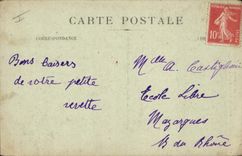 CARTE POSTALE
CORRESPONDANCE
Bons baisers
de votre petite
Melle A. Castigliani
Ecole Libre
Mazargues
B du Rhône
10